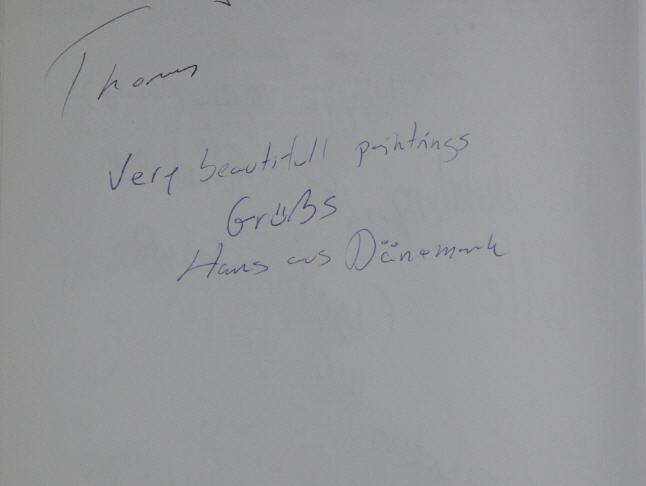 Thomas
Very beautifull paintings
Grüßs
Hans aus Dänemark